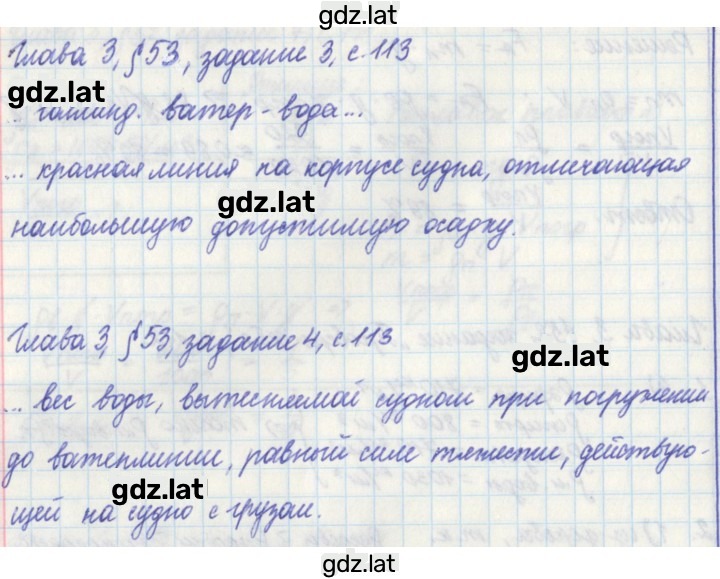 gdz.lat
Глава 3, § 53, задание 3, с. 113
gdz.lat
... голланд. ватер - вода...
... красная линия на корпусе судна, отмечающая
gdz.lat
наибольшую допустимую осадку.
Глава 3, § 53, задание 4, с. 113
gdz.lat
... вес воды, вытесняемой судном при погружении
до ватерлинии, равный силе тяжести, действую-
gdz.lat
щей на судно с грузом.
gdz.lat